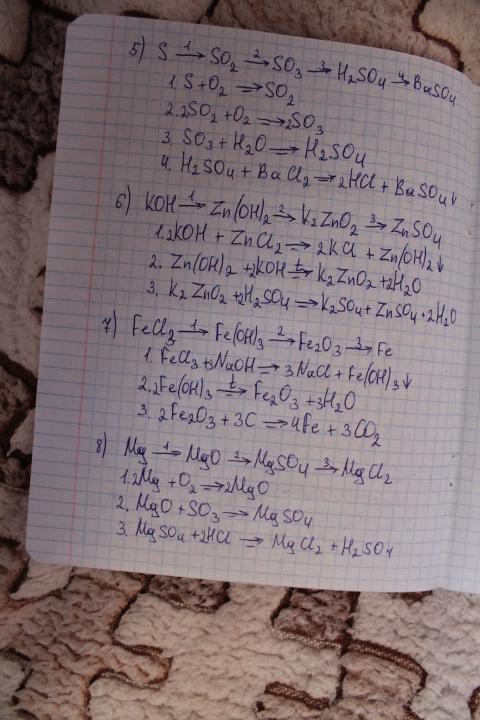 5) S 1→ SO2 2→ SO3 3→ H2SO4 4→ BaSO4
1. S + O2 ⟹ SO2
2. 2SO2 + O2 ⟹ 2SO3
3. SO3 + H2O ⟹ H2SO4
4. H2SO4 + BaCl2 ⟹ 2HCl + BaSO4↓
6) KOH 1→ Zn(OH)2 2→ K2ZnO2 3→ ZnSO4
1. 2KOH + ZnCl2 ⟹ 2KCl + Zn(OH)2↓
2. Zn(OH)2 + 2KOH t⟹ K2ZnO2 + 2H2O
3. K2ZnO2 + 2H2SO4 ⟹ K2SO4 + ZnSO4 + 2H2O
7) FeCl3 1→ Fe(OH)3 2→ Fe2O3 3→ Fe
1. FeCl3 + 3NaOH ⟹ 3NaCl + Fe(OH)3↓
2. 2Fe(OH)3 t⟹ Fe2O3 + 3H2O
3. 2Fe2O3 + 3C ⟹ 4Fe + 3CO2
8) Mg 1→ MgO 2→ MgSO4 3→ MgCl2
1. 2Mg + O2 ⟹ 2MgO
2. MgO + SO3 ⟹ MgSO4
3. MgSO4 + 2HCl ⟹ MgCl2 + H2SO4